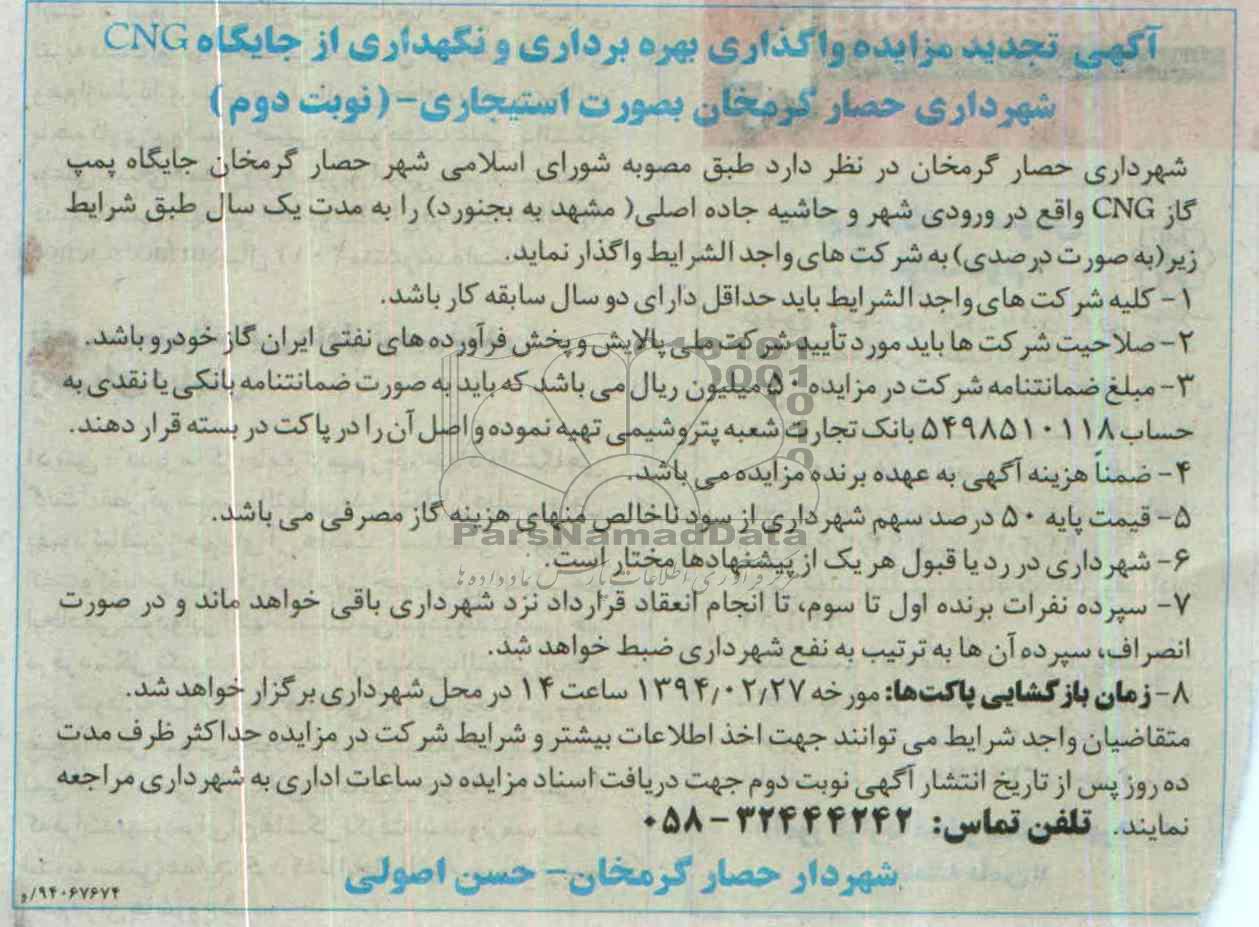 آگهی تجدید مزایده واگذاری بهره برداری و نگهداری از جایگاه CNG
شهرداری حصار گرمخان بصورت استیجاری- (نوبت دوم)
شهرداری حصار گرمخان در نظر دارد طبق مصوبه شورای اسلامی شهر حصار گرمخان جایگاه پمپ
گاز CNG واقع در ورودی شهر و حاشیه جاده اصلی( مشهد به بجنورد) را به مدت یک سال طبق شرایط
زیر(به صورت درصدی) به شرکت های واجد الشرایط واگذار نماید.
۱- کلیه شرکت های واجد الشرایط باید حداقل دارای دو سال سابقه کار باشد.
۲- صلاحیت شرکت ها باید مورد تأیید شرکت ملی پالایش و پخش فرآورده های نفتی ایران گاز خودرو باشد.
۳- مبلغ ضمانتنامه شرکت در مزایده ۵۰ میلیون ریال می باشد که باید به صورت ضمانتنامه بانکی یا نقدی به
حساب ۵۴۹۸۵۱۰۱۱۸ بانک تجارت شعبه پتروشیمی تهیه نموده و اصل آن را در پاکت در بسته قرار دهند.
۴- ضمناً هزینه آگهی به عهده برنده مزایده می باشد.
۵- قیمت پایه ۵۰ درصد سهم شهرداری از سود ناخالص منهای هزینه گاز مصرفی می باشد.
ParsNamadData
۶- شهرداری در رد یا قبول هر یک از پیشنهادها مختار است.
۷- سپرده نفرات برنده اول تا سوم، تا انجام انعقاد قرارداد نزد شهرداری باقی خواهد ماند و در صورت
انصراف، سپرده آن ها به ترتیب به نفع شهرداری ضبط خواهد شد.
۸- زمان بازگشایی پاکت‌ها: مورخه ۱۳۹۴/۰۲/۲۷ ساعت ۱۴ در محل شهرداری برگزار خواهد شد.
متقاضیان واجد شرایط می توانند جهت اخذ اطلاعات بیشتر و شرایط شرکت در مزایده حداکثر ظرف مدت
ده روز پس از تاریخ انتشار آگهی نوبت دوم جهت دریافت اسناد مزایده در ساعات اداری به شهرداری مراجعه
نمایند. تلفن تماس: ۳۲۴۴۴۲۴۲ - ۰۵۸
شهردار حصار گرمخان- حسن اصولی
۹۴۰۶۷۶۷۴/و